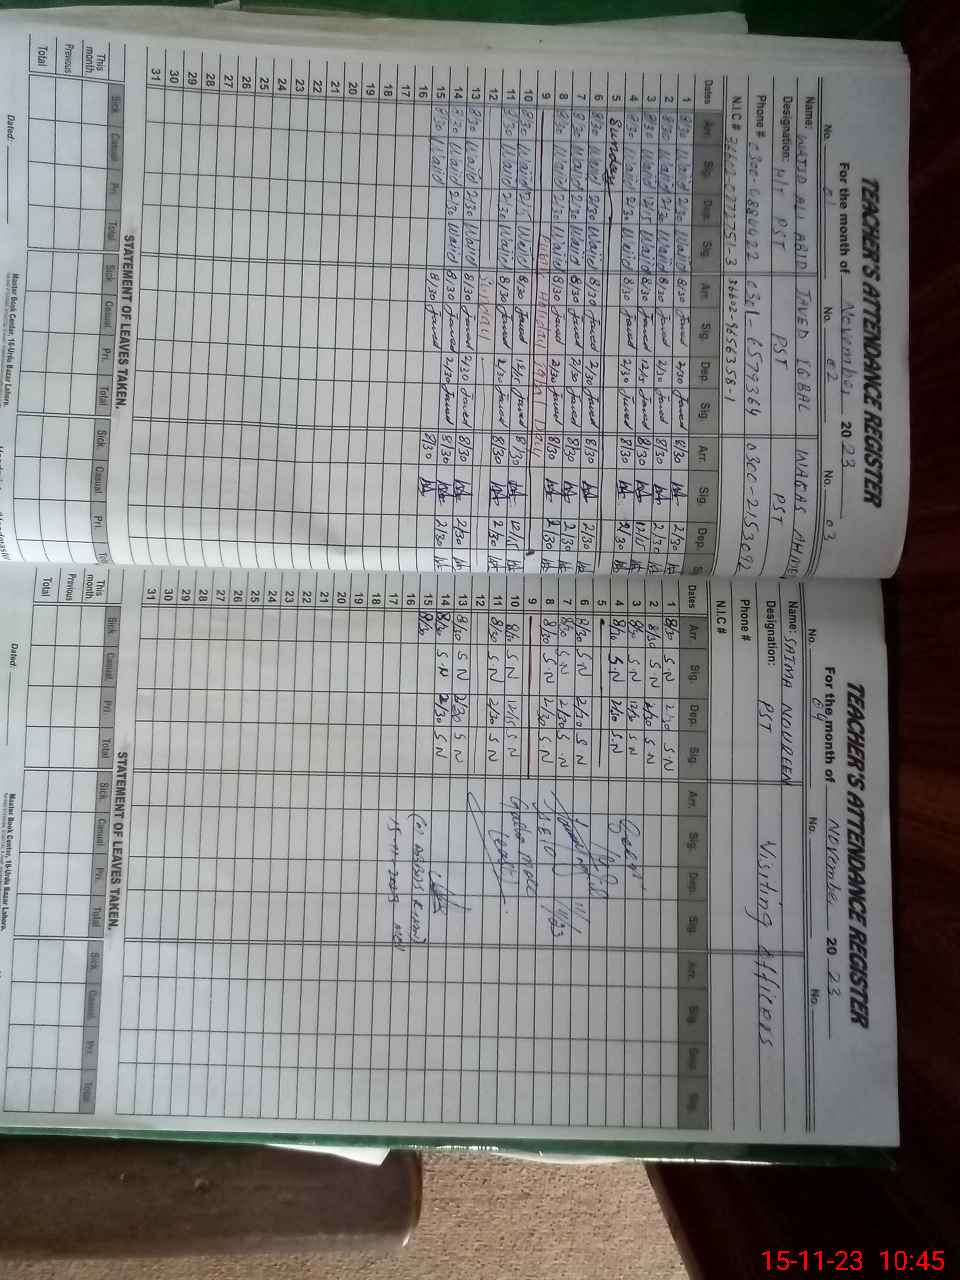 TEACHER'S ATTENDANCE REGISTER
For the month of November 2023
No. 01 No. 02 No. 03
Name: WAJID ALI ABID JAVED IQBAL WAQAS AHMED
Designation: PST PST PST
Phone # 0301-6579364 0300-2153092
N.I.C # 36602-9656358-1
Dates Arr. Sig. Dep. Sig. Arr. Sig. Dep. Sig. Arr. Sig. Dep.
1 8/30 Wajid 2/30 Wajid 8/30 Javed 2/30 Javed 8/30 2/30
2 8/30 Wajid 2/30 Wajid 8/30 Javed 2/30 Javed 8/30 2/30
3 8/30 Wajid 12/15 Wajid 8/30 Javed 12/15 Javed 8/30 12/15
4 8/30 Wajid 2/30 Wajid 8/30 Javed 2/30 Javed 8/30 2/30
5 Sunday
6 8/30 Wajid 2/30 Wajid 8/30 Javed 2/30 Javed 8/30 2/30
7 8/30 Wajid 2/30 Wajid 8/30 Javed 2/30 Javed 8/30 2/30
8 8/30 Wajid 2/30 Wajid 8/30 Javed 2/30 Javed 8/30 2/30
9 Public Holiday Iqbal Day
10 8/30 Wajid 12/15 Wajid 8/30 Javed 12/15 Javed 8/30 12/15
11 8/30 Wajid 2/30 Wajid 8/30 Javed 2/30 Javed 8/30 2/30
12 Sunday
13 8/30 Wajid 2/30 Wajid 8/30 Javed 2/30 Javed 8/30 2/30
14 8/30 Wajid 2/30 Wajid 8/30 Javed 2/30 Javed 8/30 2/30
15 8/30 Wajid 8/30 Javed 8/30
16
17
18
19
20
21
22
23
24
25
26
27
28
29
30
31
STATEMENT OF LEAVES TAKEN.
Sick. Casual Pri. Total Sick. Casual Pri. Total Sick. Casual Pri.
This month.
Previous
Total
Dated:
Master Book Center, 16-Urdu Bazar Lahore.
TEACHER'S ATTENDANCE REGISTER
For the month of November 2023
No. 04 No. No.
Name: SAIMA NOUREEN Visiting Officers
Designation: PST
Phone #
N.I.C #
Dates Arr. Sig. Dep. Sig. Arr. Sig. Dep. Sig. Arr. Sig. Dep. Sig.
1 8/30 S.N 2/30 S.N
2 8/30 S.N 2/30 S.N
3 8/30 S.N 12/15 S.N
4 8/30 S.N 2/30 S.N
5
6 8/30 S.N 2/30 S.N
7 8/30 S.N 2/30 S.N
8 8/30 S.N 2/30 S.N
9
10 8/30 S.N 12/15 S.N
11 8/30 S.N 2/30 S.N
12
13 8/30 S.N 2/30 S.N
14 8/30 S.N 2/30 S.N
15 8/30
16
17 15-11-2023
18
19
20
21
22
23
24
25
26
27
28
29
30
31
STATEMENT OF LEAVES TAKEN.
Sick. Casual Pri. Total Sick. Casual Pri. Total Sick. Casual Pri. Total
This month.
Previous
Total
Dated:
Master Book Center, 16-Urdu Bazar Lahore.
15-11-23 10:45